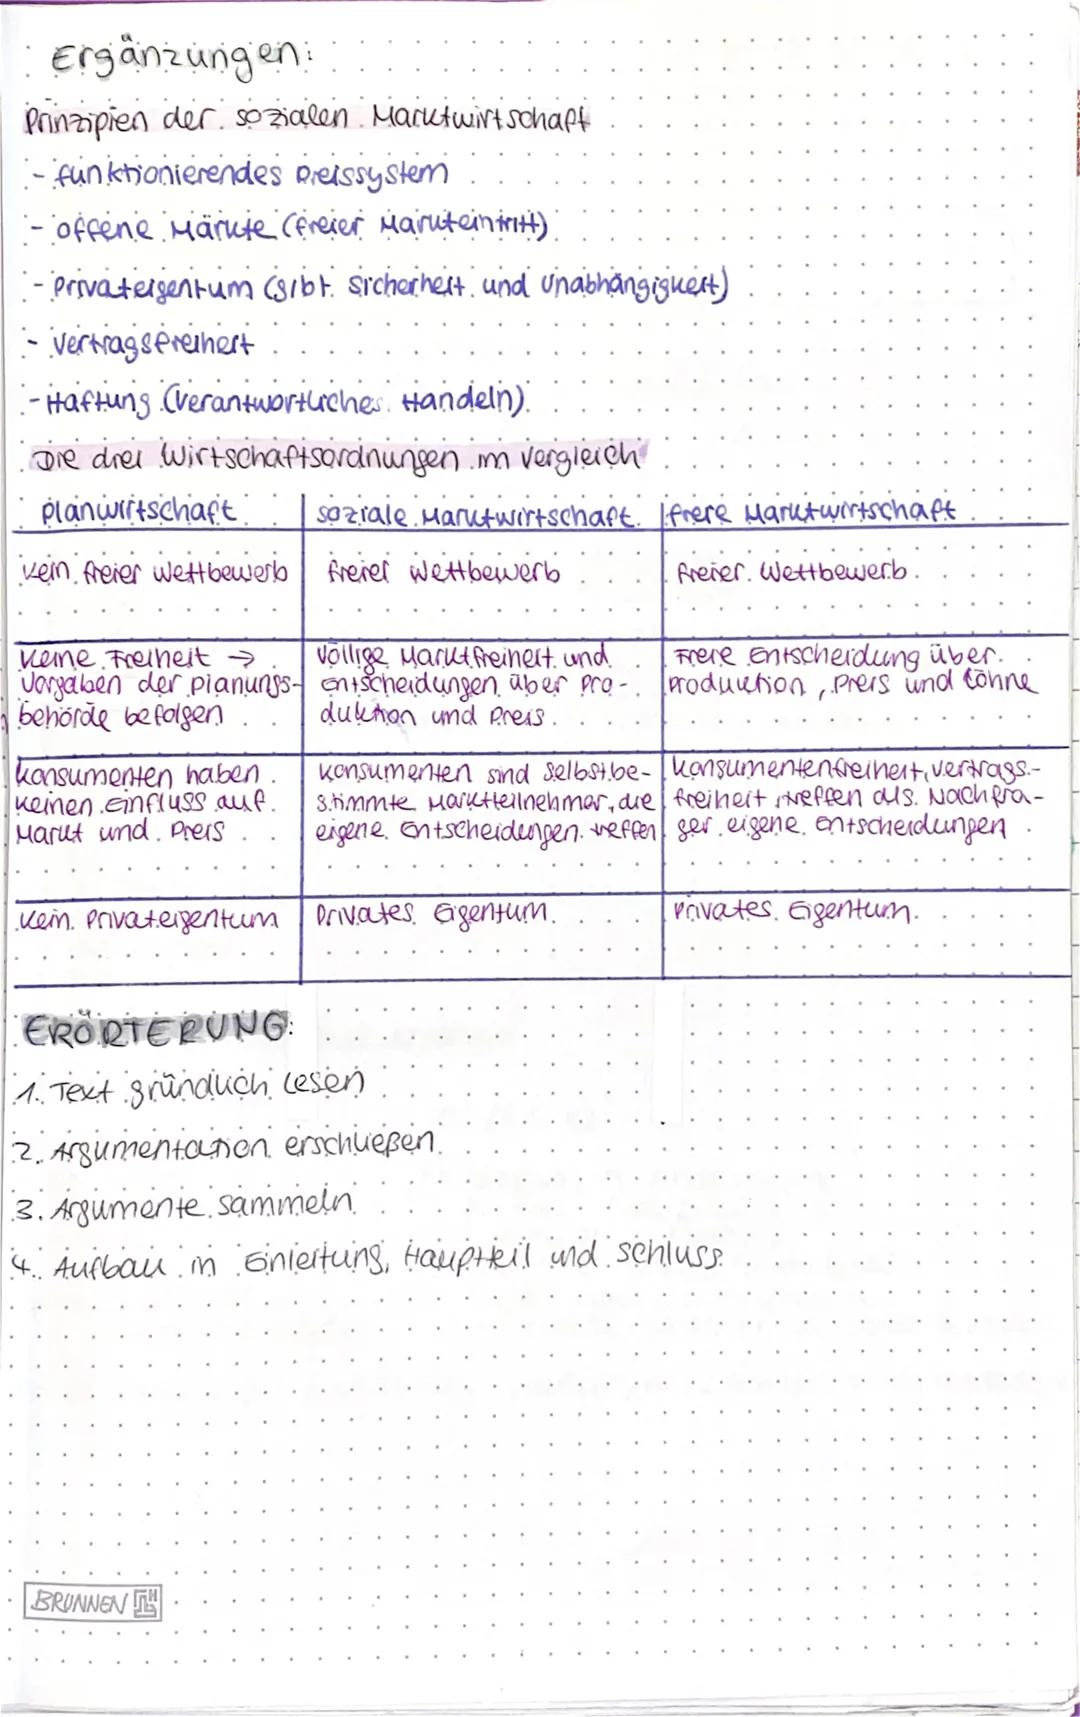 Ergänzungen:
Prinzipien der sozialen Marktwirtschaft
- funktionierendes Preissystem
- offene Märkte (freier Markteintritt)
- Privateigentum (gibt Sicherheit und Unabhängigkeit)
- Vertragsfreiheit
- Haftung (verantwortliches Handeln)
Die drei Wirtschaftsordnungen im Vergleich
Planwirtschaft | soziale Marktwirtschaft | freie Marktwirtschaft
kein freier Wettbewerb | freier Wettbewerb | freier Wettbewerb
keine Freiheit → | völlige Marktfreiheit und | Freie Entscheidung über
Vorgaben der Planungs- | Entscheidungen über Pro- | Produktion, Preis und Löhne
behörde befolgen | duktion und Preis
Konsumenten haben | Konsumenten sind selbstbe- | Konsumentenfreiheit, Vertrags-
keinen Einfluss auf | stimmte Marktteilnehmer, die | freiheit, treffen als Nachfra-
Markt und Preis | eigene Entscheidungen treffen | ger eigene Entscheidungen
kein Privateigentum | Privates Eigentum | Privates Eigentum
ERÖRTERUNG:
1. Text gründlich lesen
2. Argumentation erschließen
3. Argumente sammeln
4. Aufbau in Einleitung, Hauptteil und Schluss
BRUNNEN